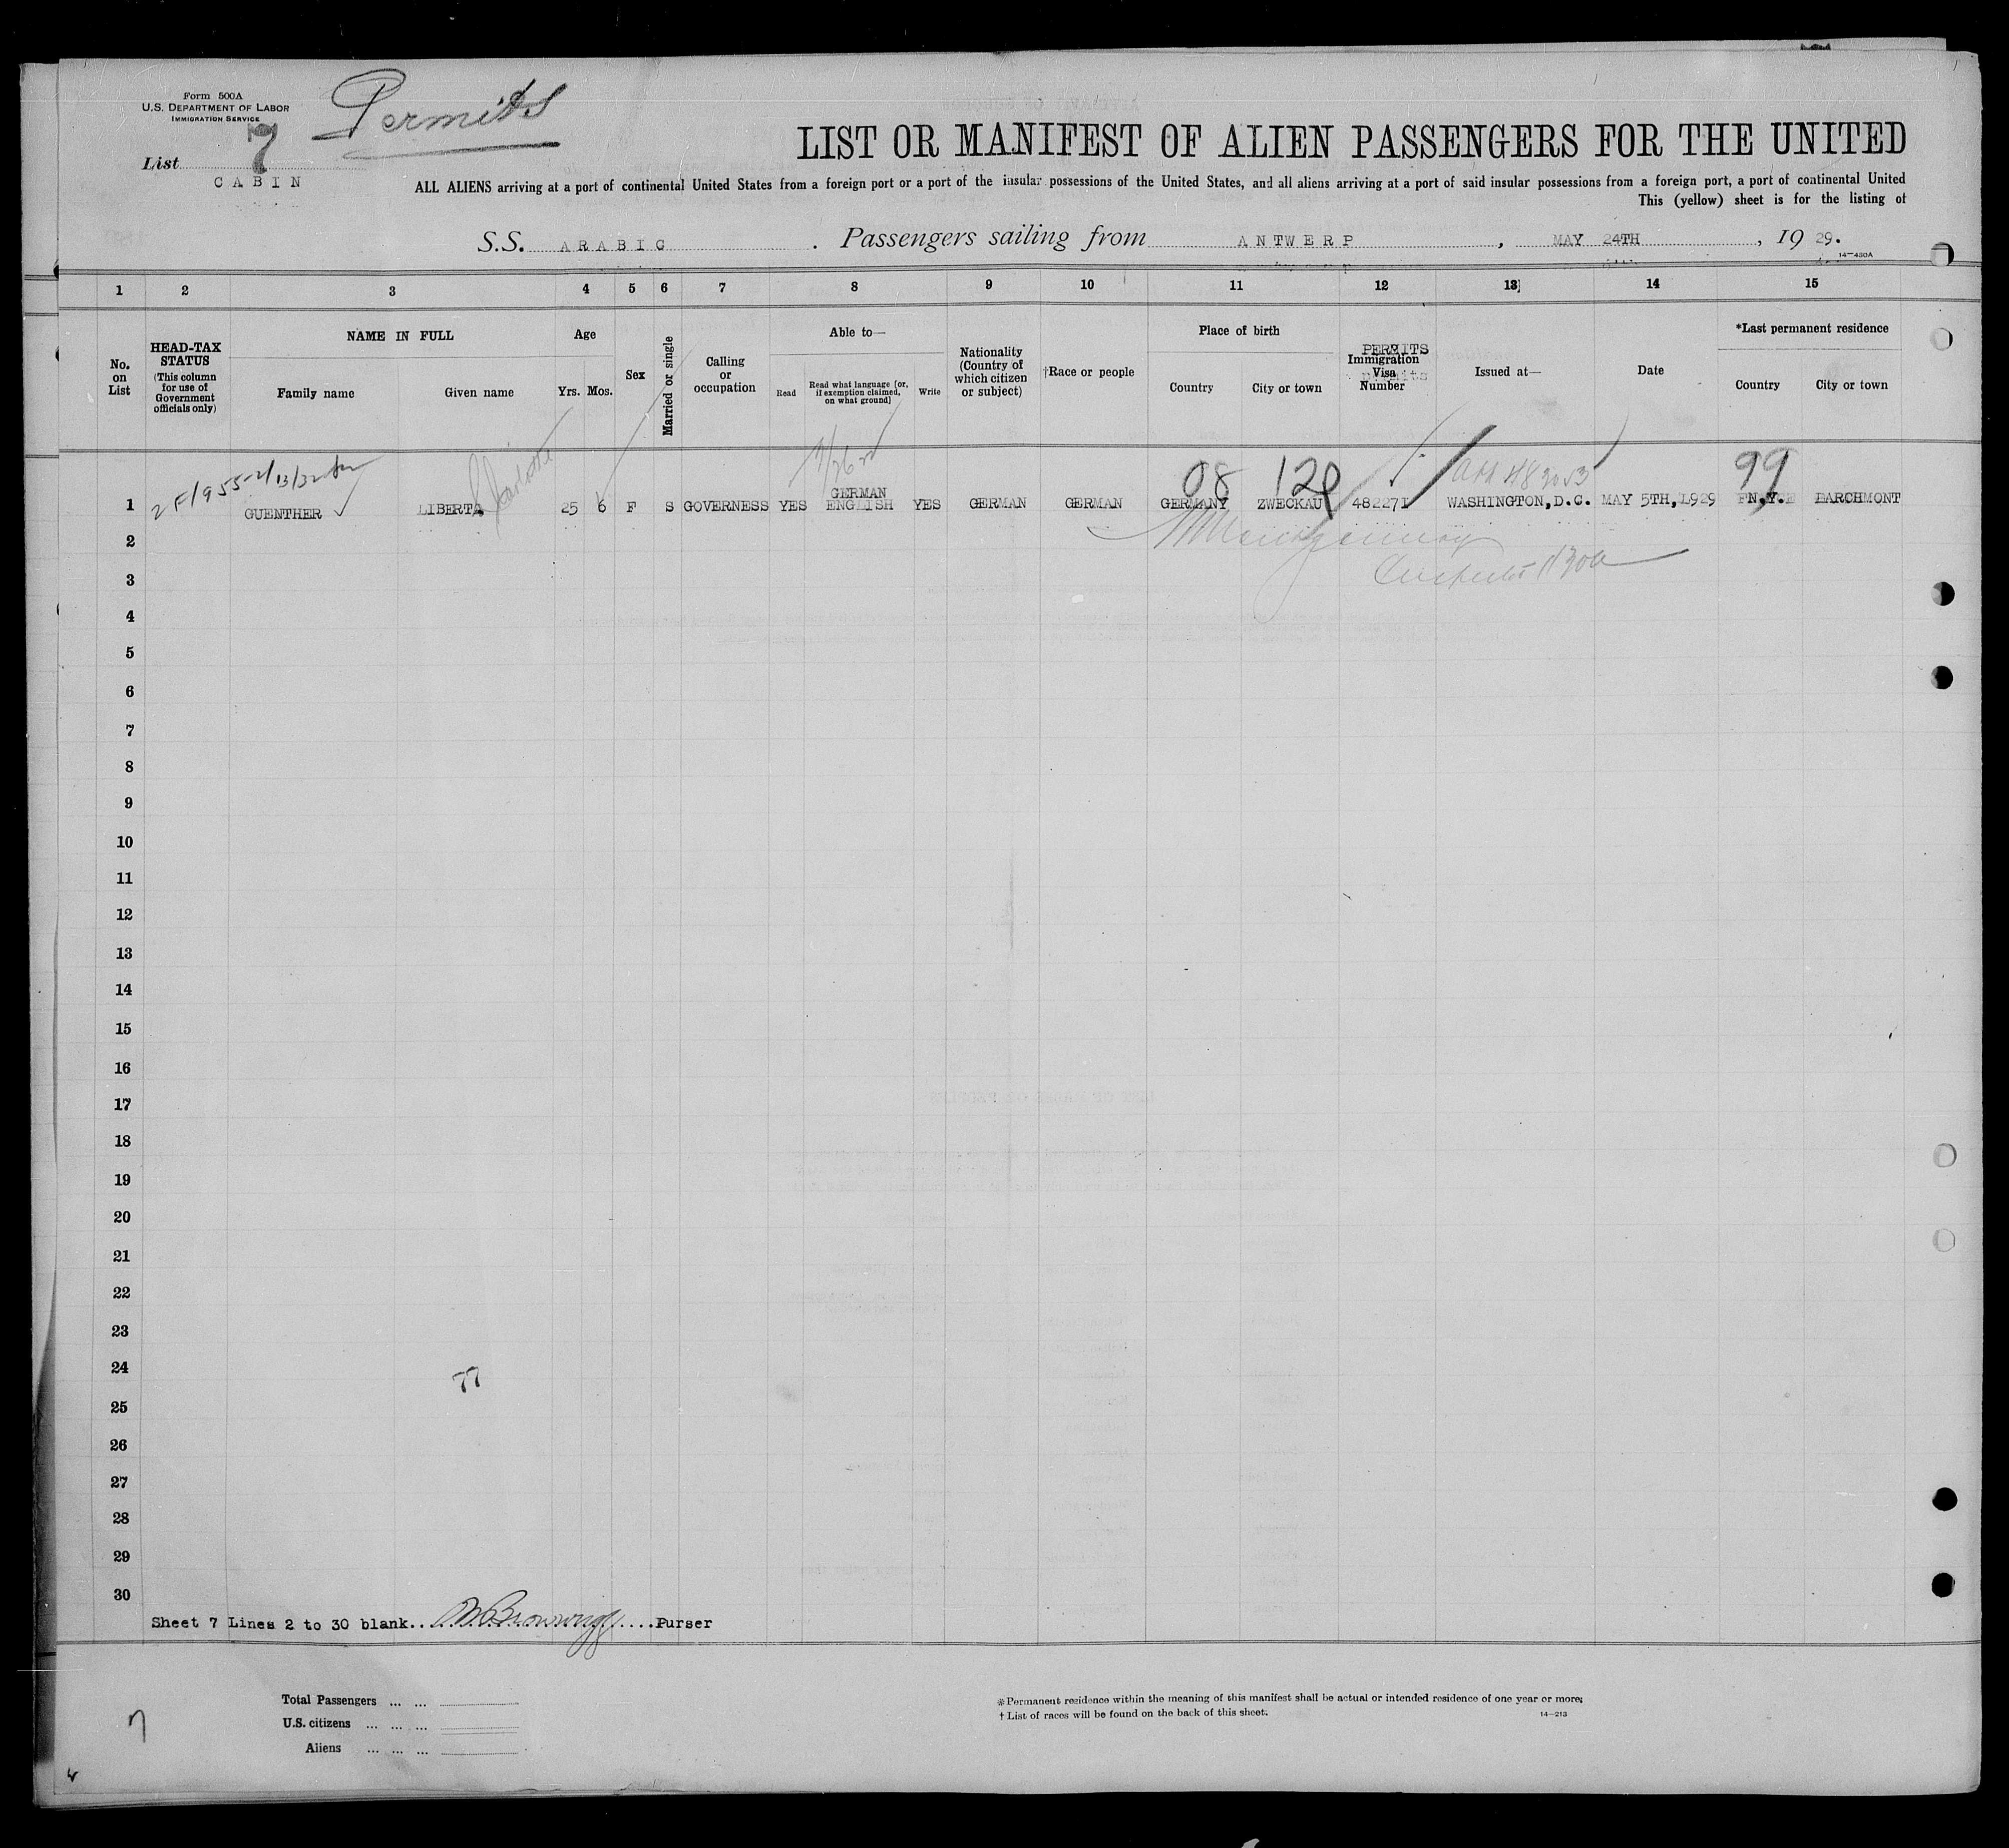 Form 500A
U.S. DEPARTMENT OF LABOR
IMMIGRATION SERVICE
Permits
List 7
CABIN
LIST OR MANIFEST OF ALIEN PASSENGERS FOR THE UNITED
ALL ALIENS arriving at a port of continental United States from a foreign port or a port of the insular possessions of the United States, and all aliens arriving at a port of said insular possessions from a foreign port, a port of continental United
This (yellow) sheet is for the listing of
S.S. ARABIC . Passengers sailing from ANTWERP , MAY 24TH , 19 29.
14—430A
1 2 3 4 5 6 7 8 9 10 11 12 13 14 15
No. on List
HEAD-TAX STATUS
(This column for use of Government officials only)
NAME IN FULL
Family name
Given name
Age
Yrs. Mos.
Sex
Married or single
Calling or occupation
Able to—
Read
Read what language [or, if exemption claimed, on what ground]
Write
Nationality (Country of which citizen or subject)
†Race or people
Place of birth
Country
City or town
PERMITS
Immigration Visa Number
Issued at—
Date
*Last permanent residence
Country
City or town
08 120 99
1 GUENTHER LIBERTA 25 6 F S GOVERNESS YES GERMAN ENGLISH YES GERMAN GERMAN GERMANY ZWECKAU 482271 WASHINGTON, D.C. MAY 5TH, 1929 N.Y. LARCHMONT
2
3
4
5
6
7
8
9
10
11
12
13
14
15
16
17
18
19
20
21
22
23
24
77
25
26
27
28
29
30
Sheet 7 Lines 2 to 30 blank.. ....Purser
Total Passengers ... ...
U.S. citizens ... ... ...
Aliens ... ... ...
7
*Permanent residence within the meaning of this manifest shall be actual or intended residence of one year or more.
† List of races will be found on the back of this sheet.
14—213